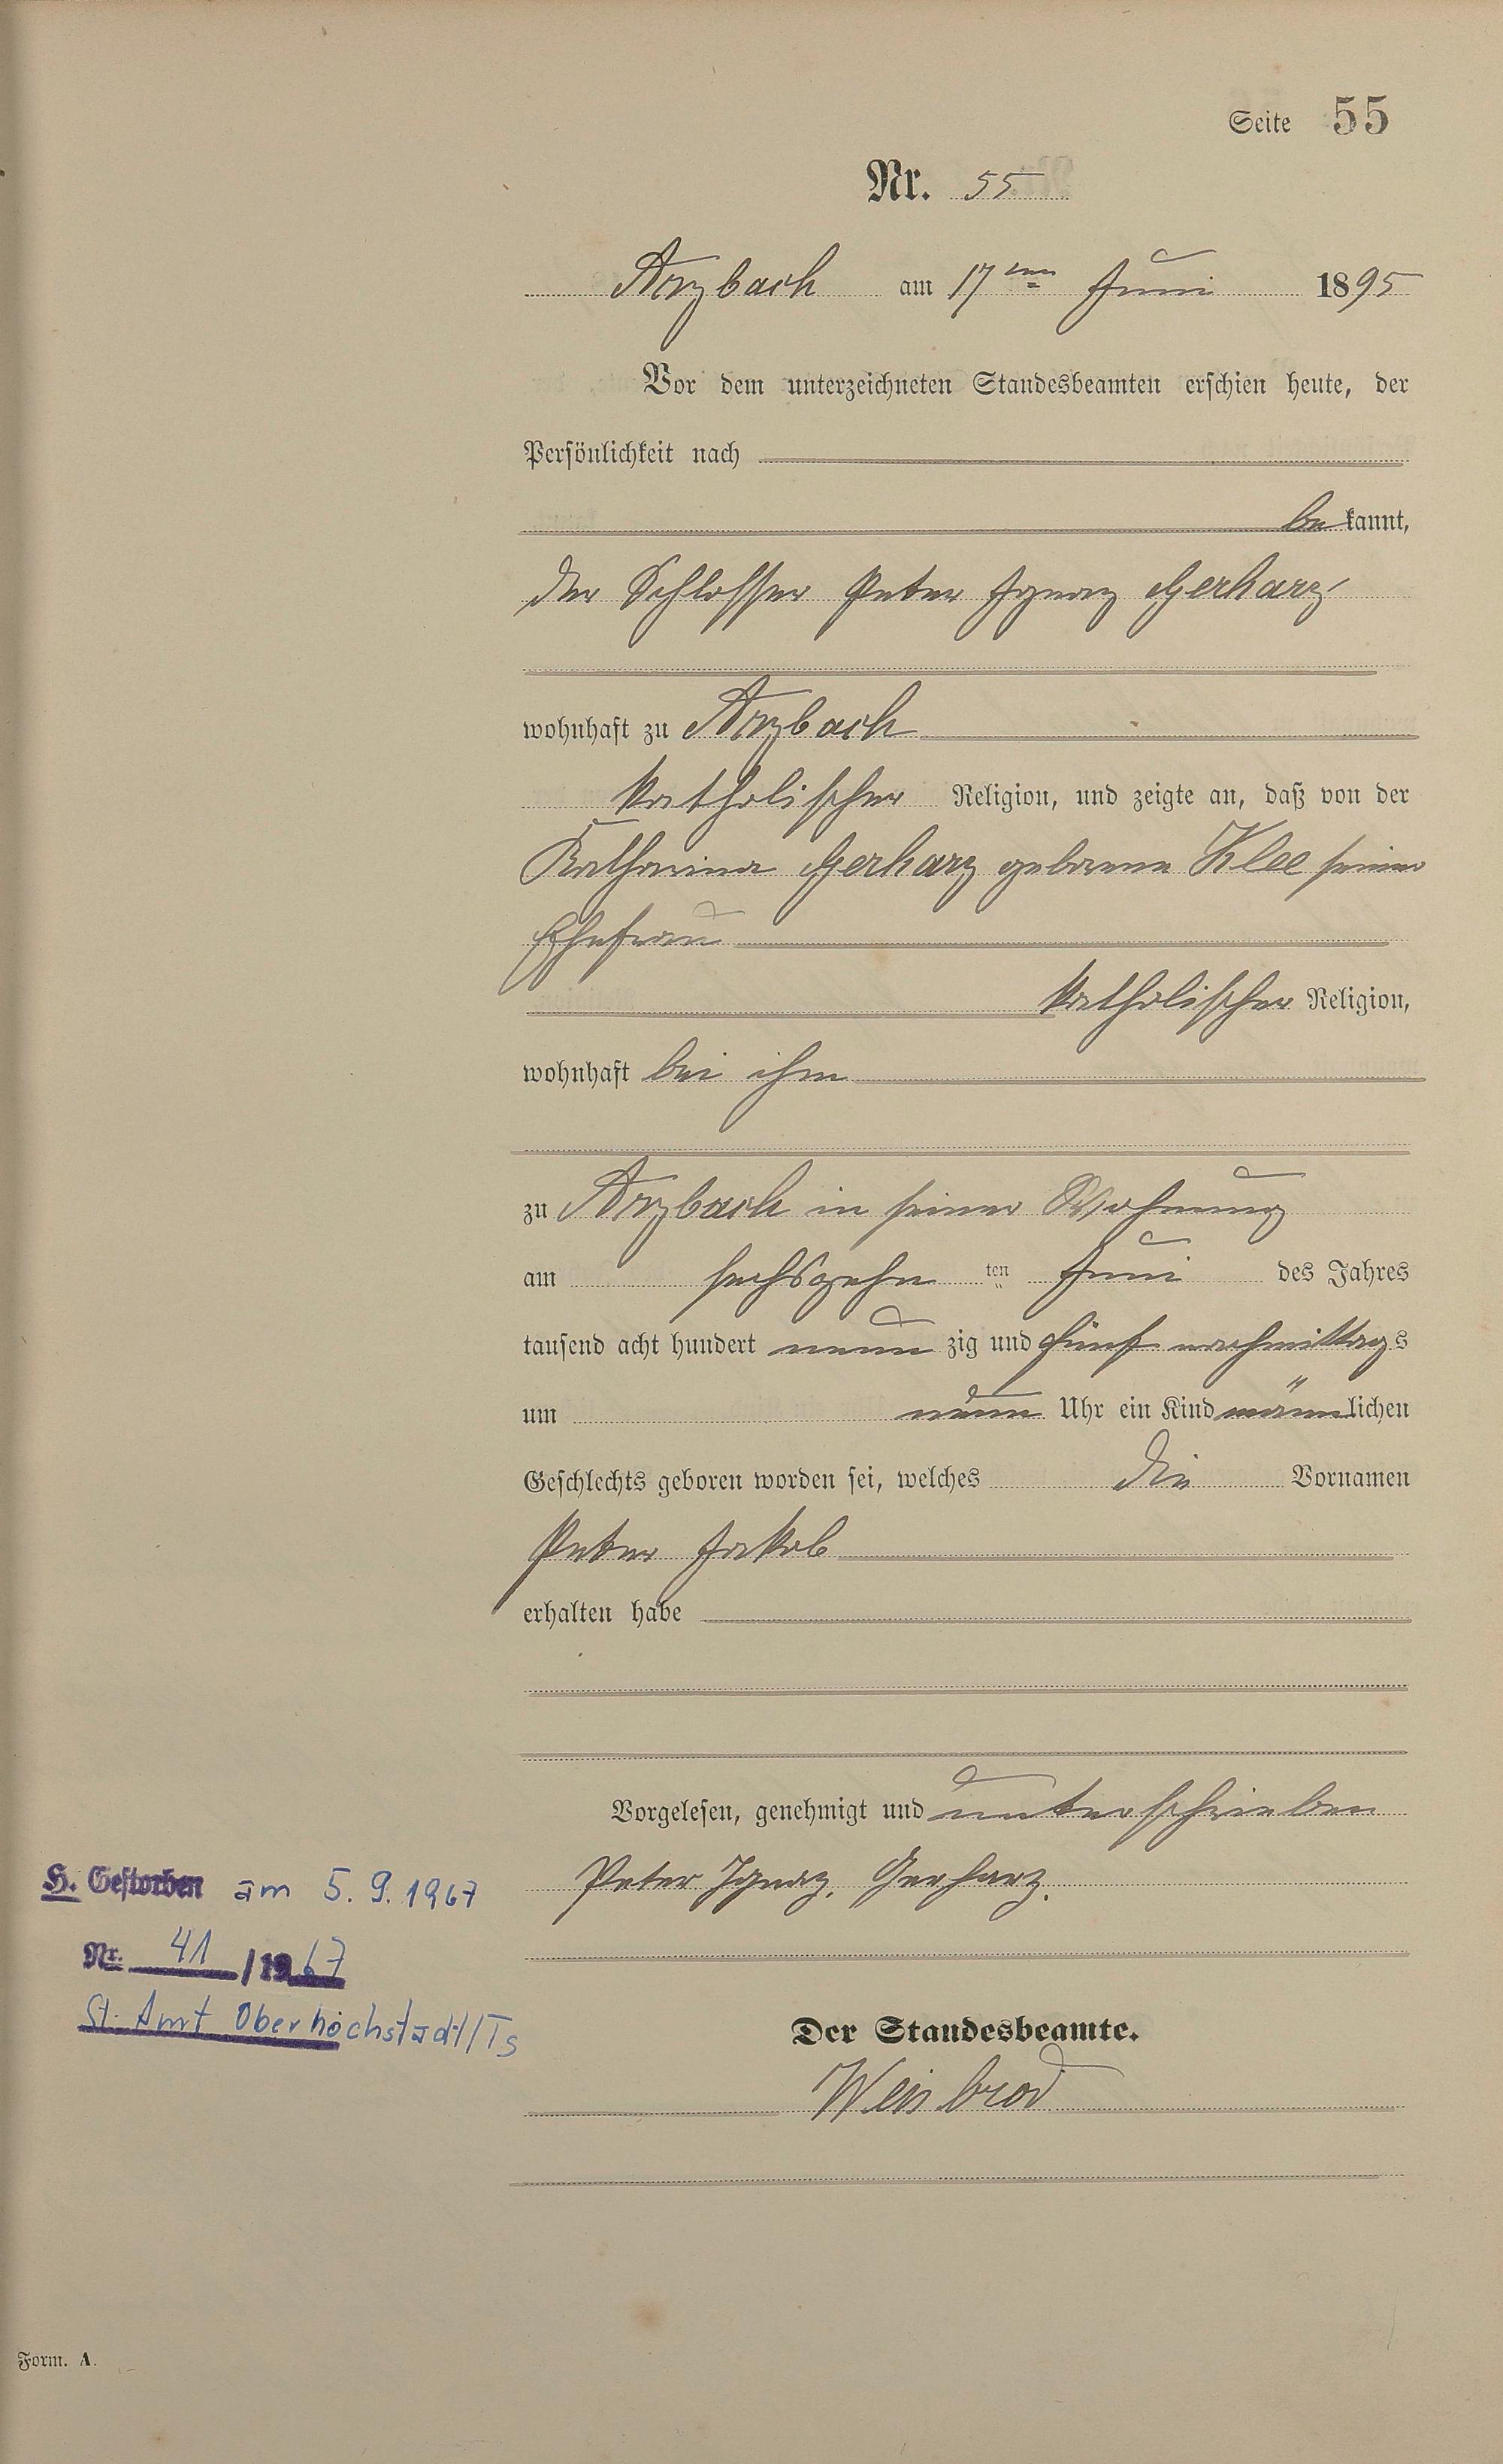 Seite 55
Nr. 55
Arzbach am 17ten Juni 1895
Vor dem unterzeichneten Standesbeamten erschien heute, der
Persönlichkeit nach
be kannt,
der Schlosser Peter Ignaz Gerharz
wohnhaft zu Arzbach
katholischer Religion, und zeigte an, daß von der
Katharina Gerharz geborene Klee seiner
Ehefrau
katholischer Religion,
wohnhaft bei ihm
zu Arzbach in seiner Wohnung
am sechszehn ten Juni des Jahres
tausend acht hundert neun zig und fünf nachmittags
um neun Uhr ein Kind männlichen
Geschlechts geboren worden sei, welches die Vornamen
Peter Jakob
erhalten habe
Vorgelesen, genehmigt und unterschrieben
Peter Ignaz Gerharz.
H. Gestorben am 5.9.1967
Nr. 41 /1967
St. Amt Oberhöchstadt/Ts
Der Standesbeamte.
Weisbrod
Form. A.